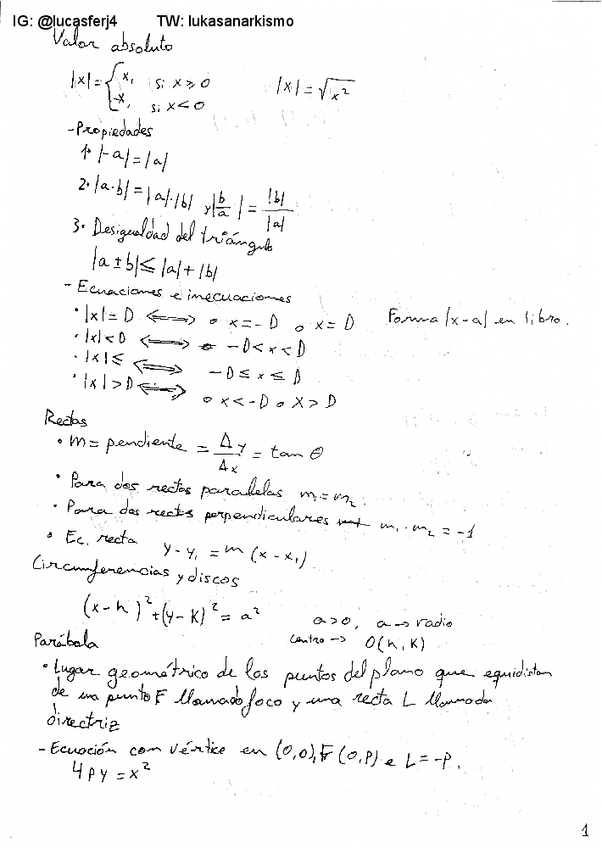 IG: @lucasferj4 TW: lukasanarkismo
Valor absoluto
|x| = { x, si x ≥ 0 |x| = √x²
-x, si x < 0
- Propiedades
1• |-a| = |a|
2• |a·b| = |a|·|b| y |b/a| = |b|/|a|
3• Desigualdad del triángulo
|a ± b| ≤ |a| + |b|
- Ecuaciones e inecuaciones
• |x| = D ⟺ o x = -D o x = D Forma |x-a| en libro.
• |x| < D ⟺ -D < x < D
• |x| ≤ ⟺ -D ≤ x ≤ D
• |x| > D ⟺ o x < -D o x > D
Rectas
• m = pendiente = Δy/Δx = tan θ
• Para dos rectas paralelas m₁ = m₂.
• Para dos rectas perpendiculares m₁ · m₂ = -1
• Ec. recta y - y₁ = m (x - x₁)
Circunferencias y discos
(x-h)² + (y-K)² = a² a > 0, a → radio
Centro → O(h, K)
Parábola
• Lugar geométrico de los puntos del plano que equidistan
de un punto F llamado foco y una recta L llamada
directriz
- Ecuación con vértice en (0,0), F (0,P) e L = -P.
4Py = x²
1